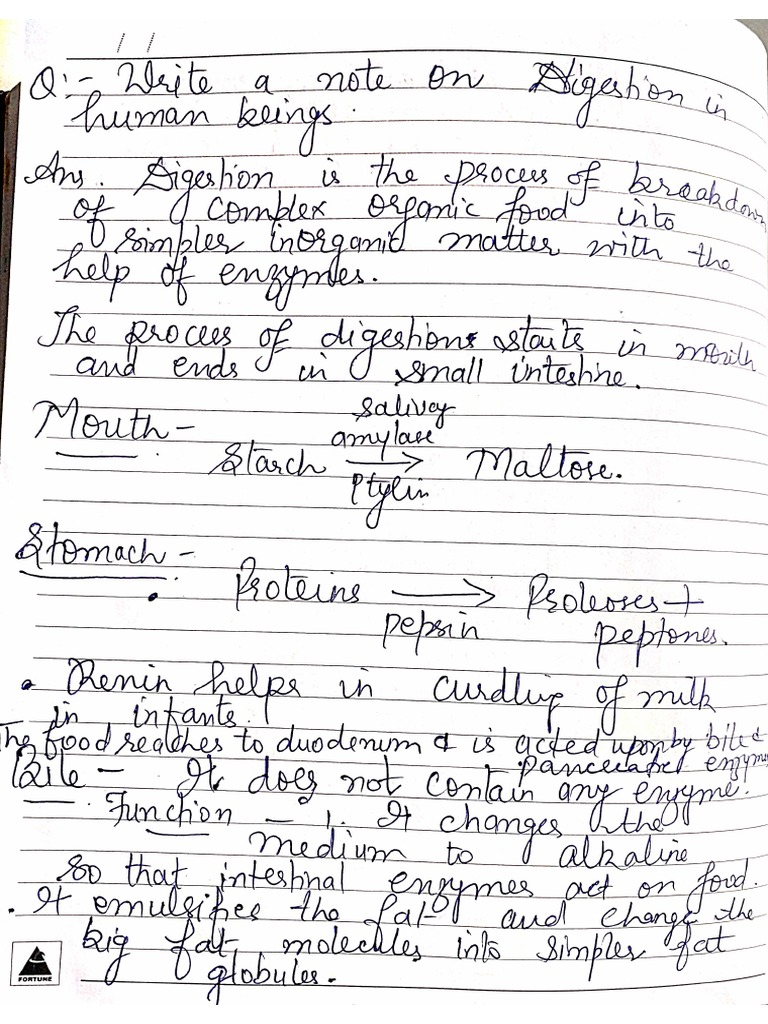 Q:- Write a note on Digestion in
human beings.
Ans. Digestion is the process of breakdown
of complex organic food into
simpler inorganic matter with the
help of enzymes.
The process of digestion starts in mouth
and ends in small intestine.
Mouth -
salivey
amylase
Starch → Maltose.
Ptylin
Stomach -
• Proteins → Proteoses +
pepsin peptones.
• Renin helps in curdling of milk
in infants.
The food reaches to duodenum & is acted upon by bile &
pancreatic enzyme
Bile - It does not contain any enzyme.
Function - 1. It changes the
medium to alkaline
so that intestinal enzymes act on food.
• It emulsifies the fat and change the
big fat molecules into simpler fat
globules.
FORTUNE